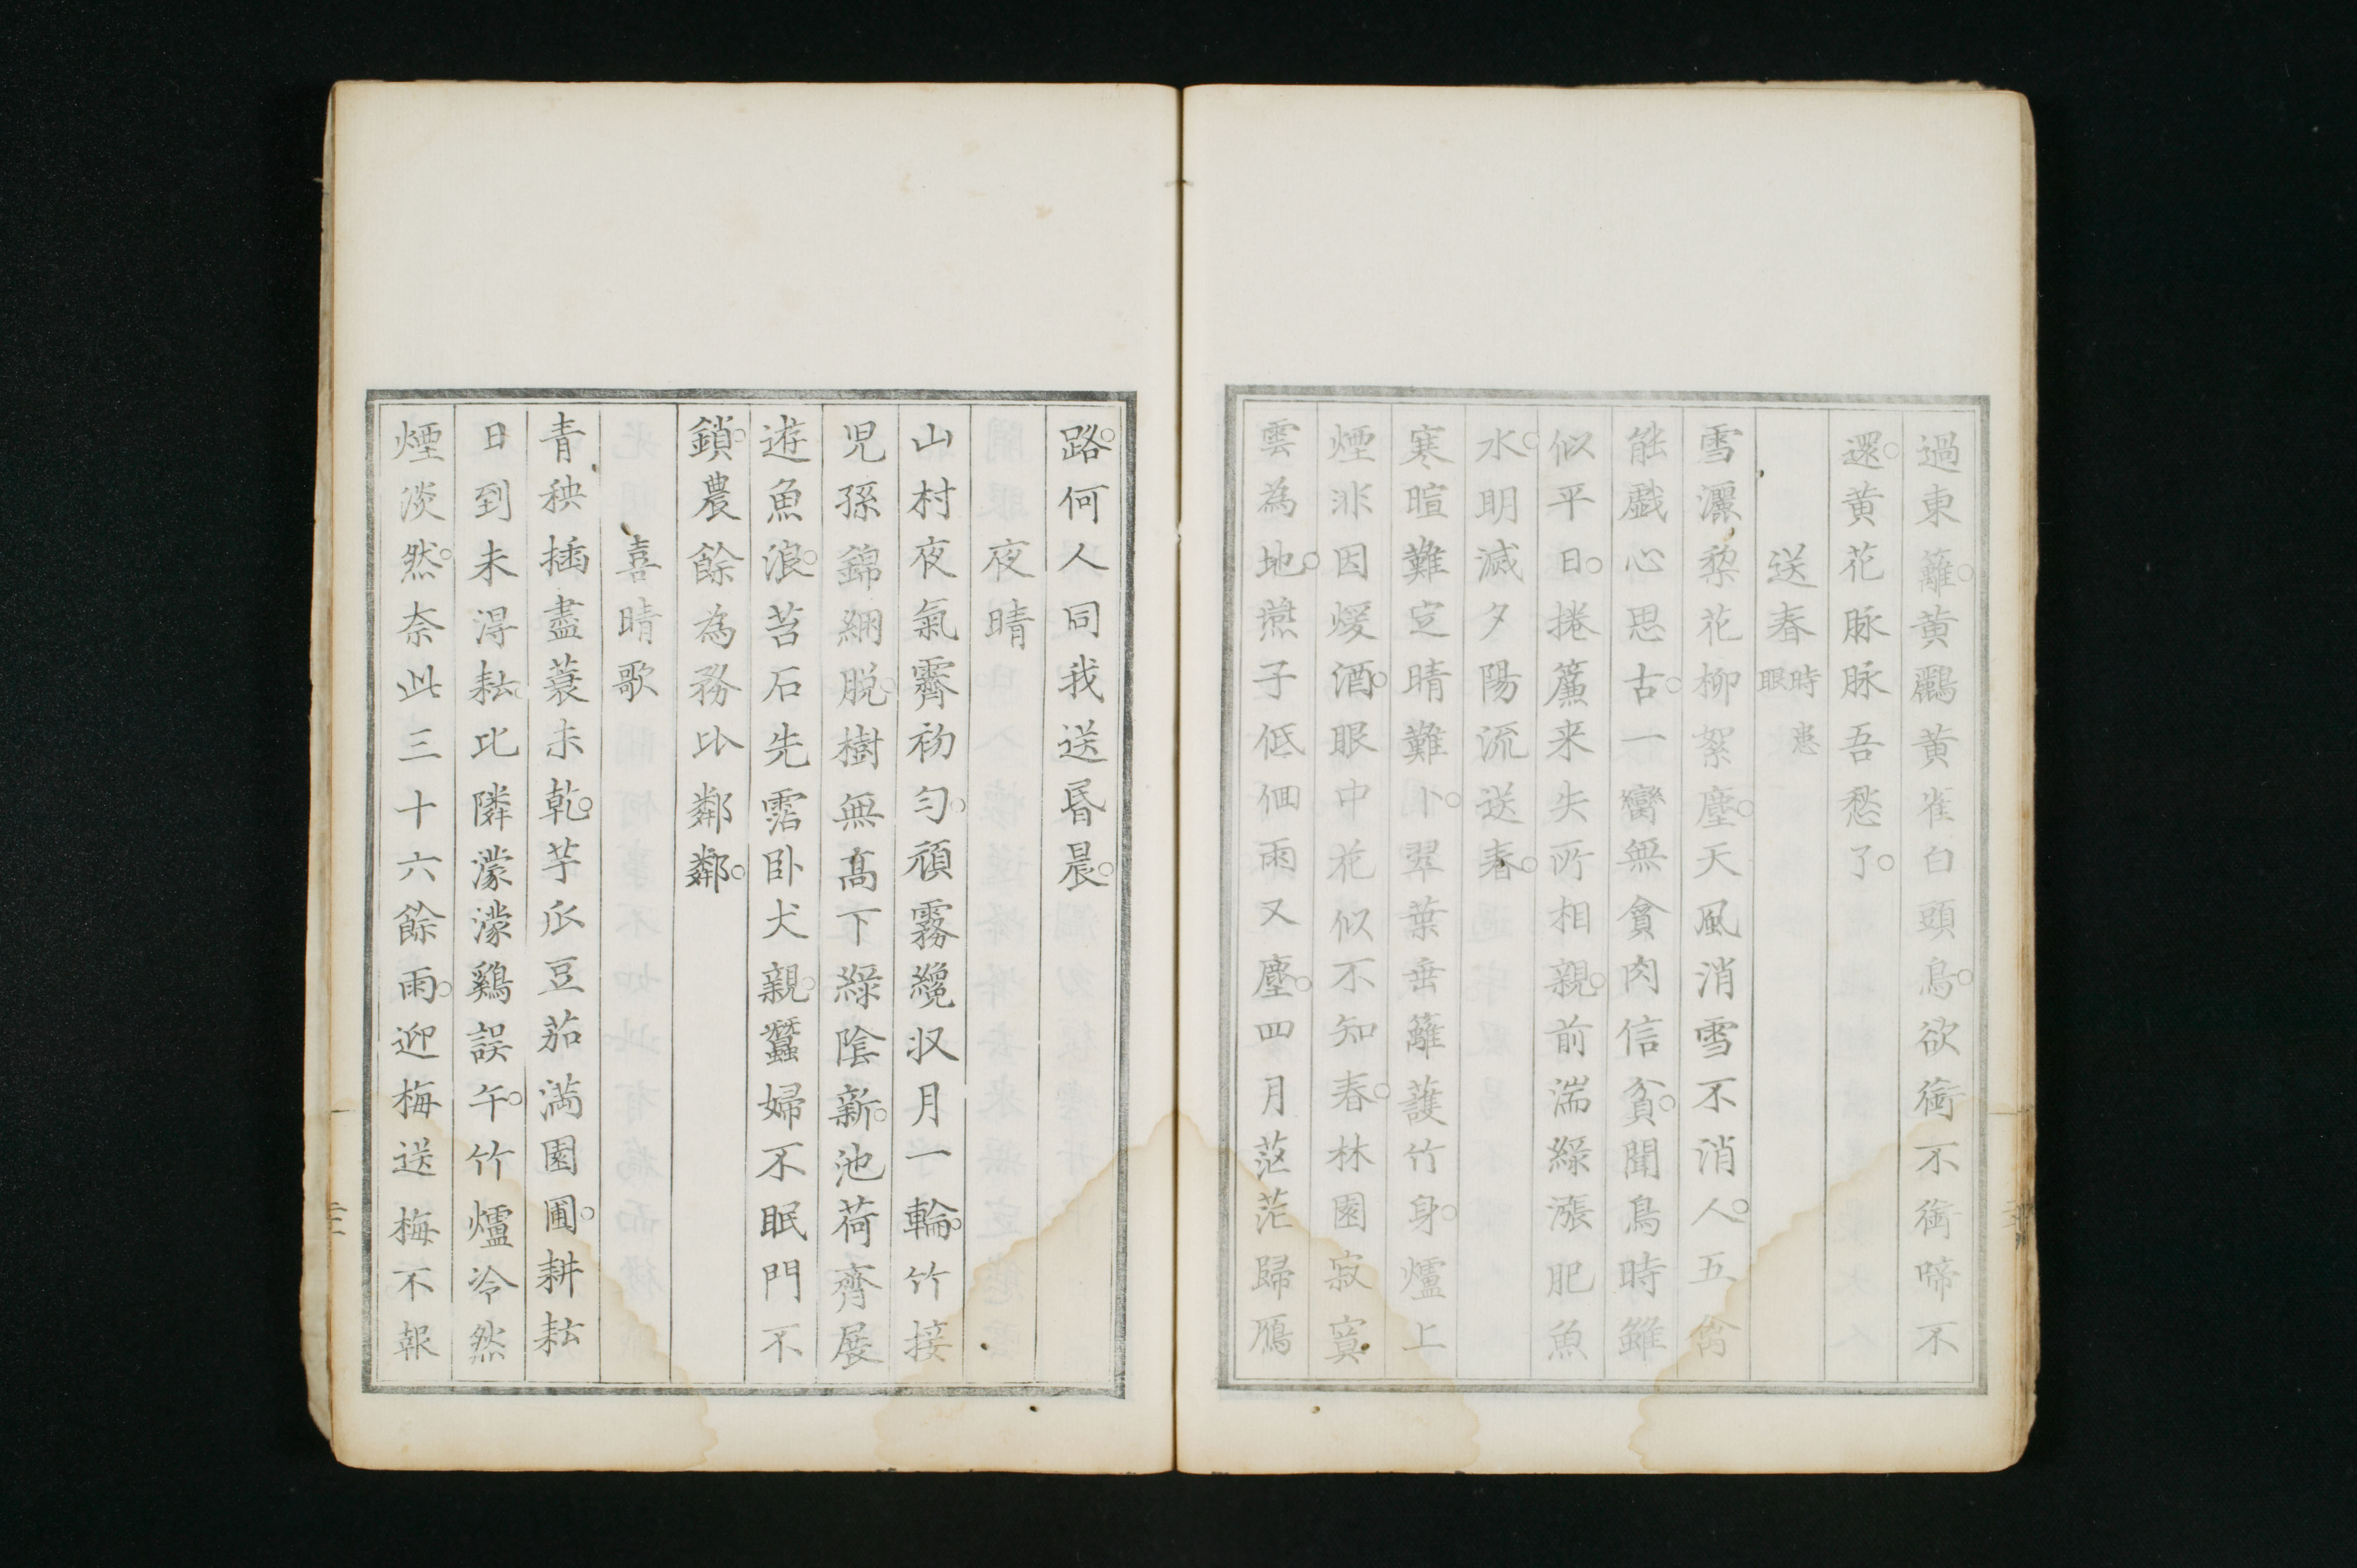 過東籬。黄鸝黄雀白頭鳥。欲銜不銜啼不
還。黄花脉脉吾愁了。
送春 時患眼
雪灑黎花柳絮塵。天風消雪不消人。五禽
能戯心思古。一臠無貪肉信貧。聞鳥時雖
似平日。捲簾来失所相親。前湍綠漲肥魚
水。明滅夕陽流送春。
寒暄難定晴難卜。翠葉垂籬護竹身。爐上
煙非因煖酒。眼中花似不知春。林園寂寞
雲為地。燕子低佪雨又塵。四月茫茫歸鴈
路。何人同我送昏晨。
夜晴
山村夜氣霽初勻。頑霧纔収月一輪。竹接
児孫錦綳脱。樹無髙下綠陰新。池荷齊展
遊魚浪。苔石先霑卧犬親。蠶婦不眠門不
鎖。農餘為務比鄰鄰。
喜晴歌
青秧插盡蓑未乾。芋瓜豆茄満園圃。耕耘
日到未得耘。比隣濛濛鷄誤午。竹爐冷然
煙淡然。奈此三十六餘雨。迎梅送梅不報